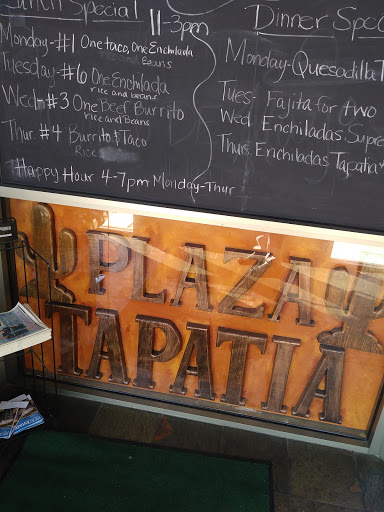 Lunch Special 11-3pm
Monday-#1 One taco, One Enchilada
and Beans
Tuesday-#6 One Enchilada
rice and beans
Wed-#3 One Beef Burrito
rice and Beans
Thur. #4 Burrito & Taco
Rice
Happy Hour 4-7pm Monday-Thur
Dinner Spec
Monday-Quesadilla T
Tues- Fajita for two
Wed. Enchiladas Supre
Thurs. Enchiladas Tapatia
PLAZA
TAPATIA